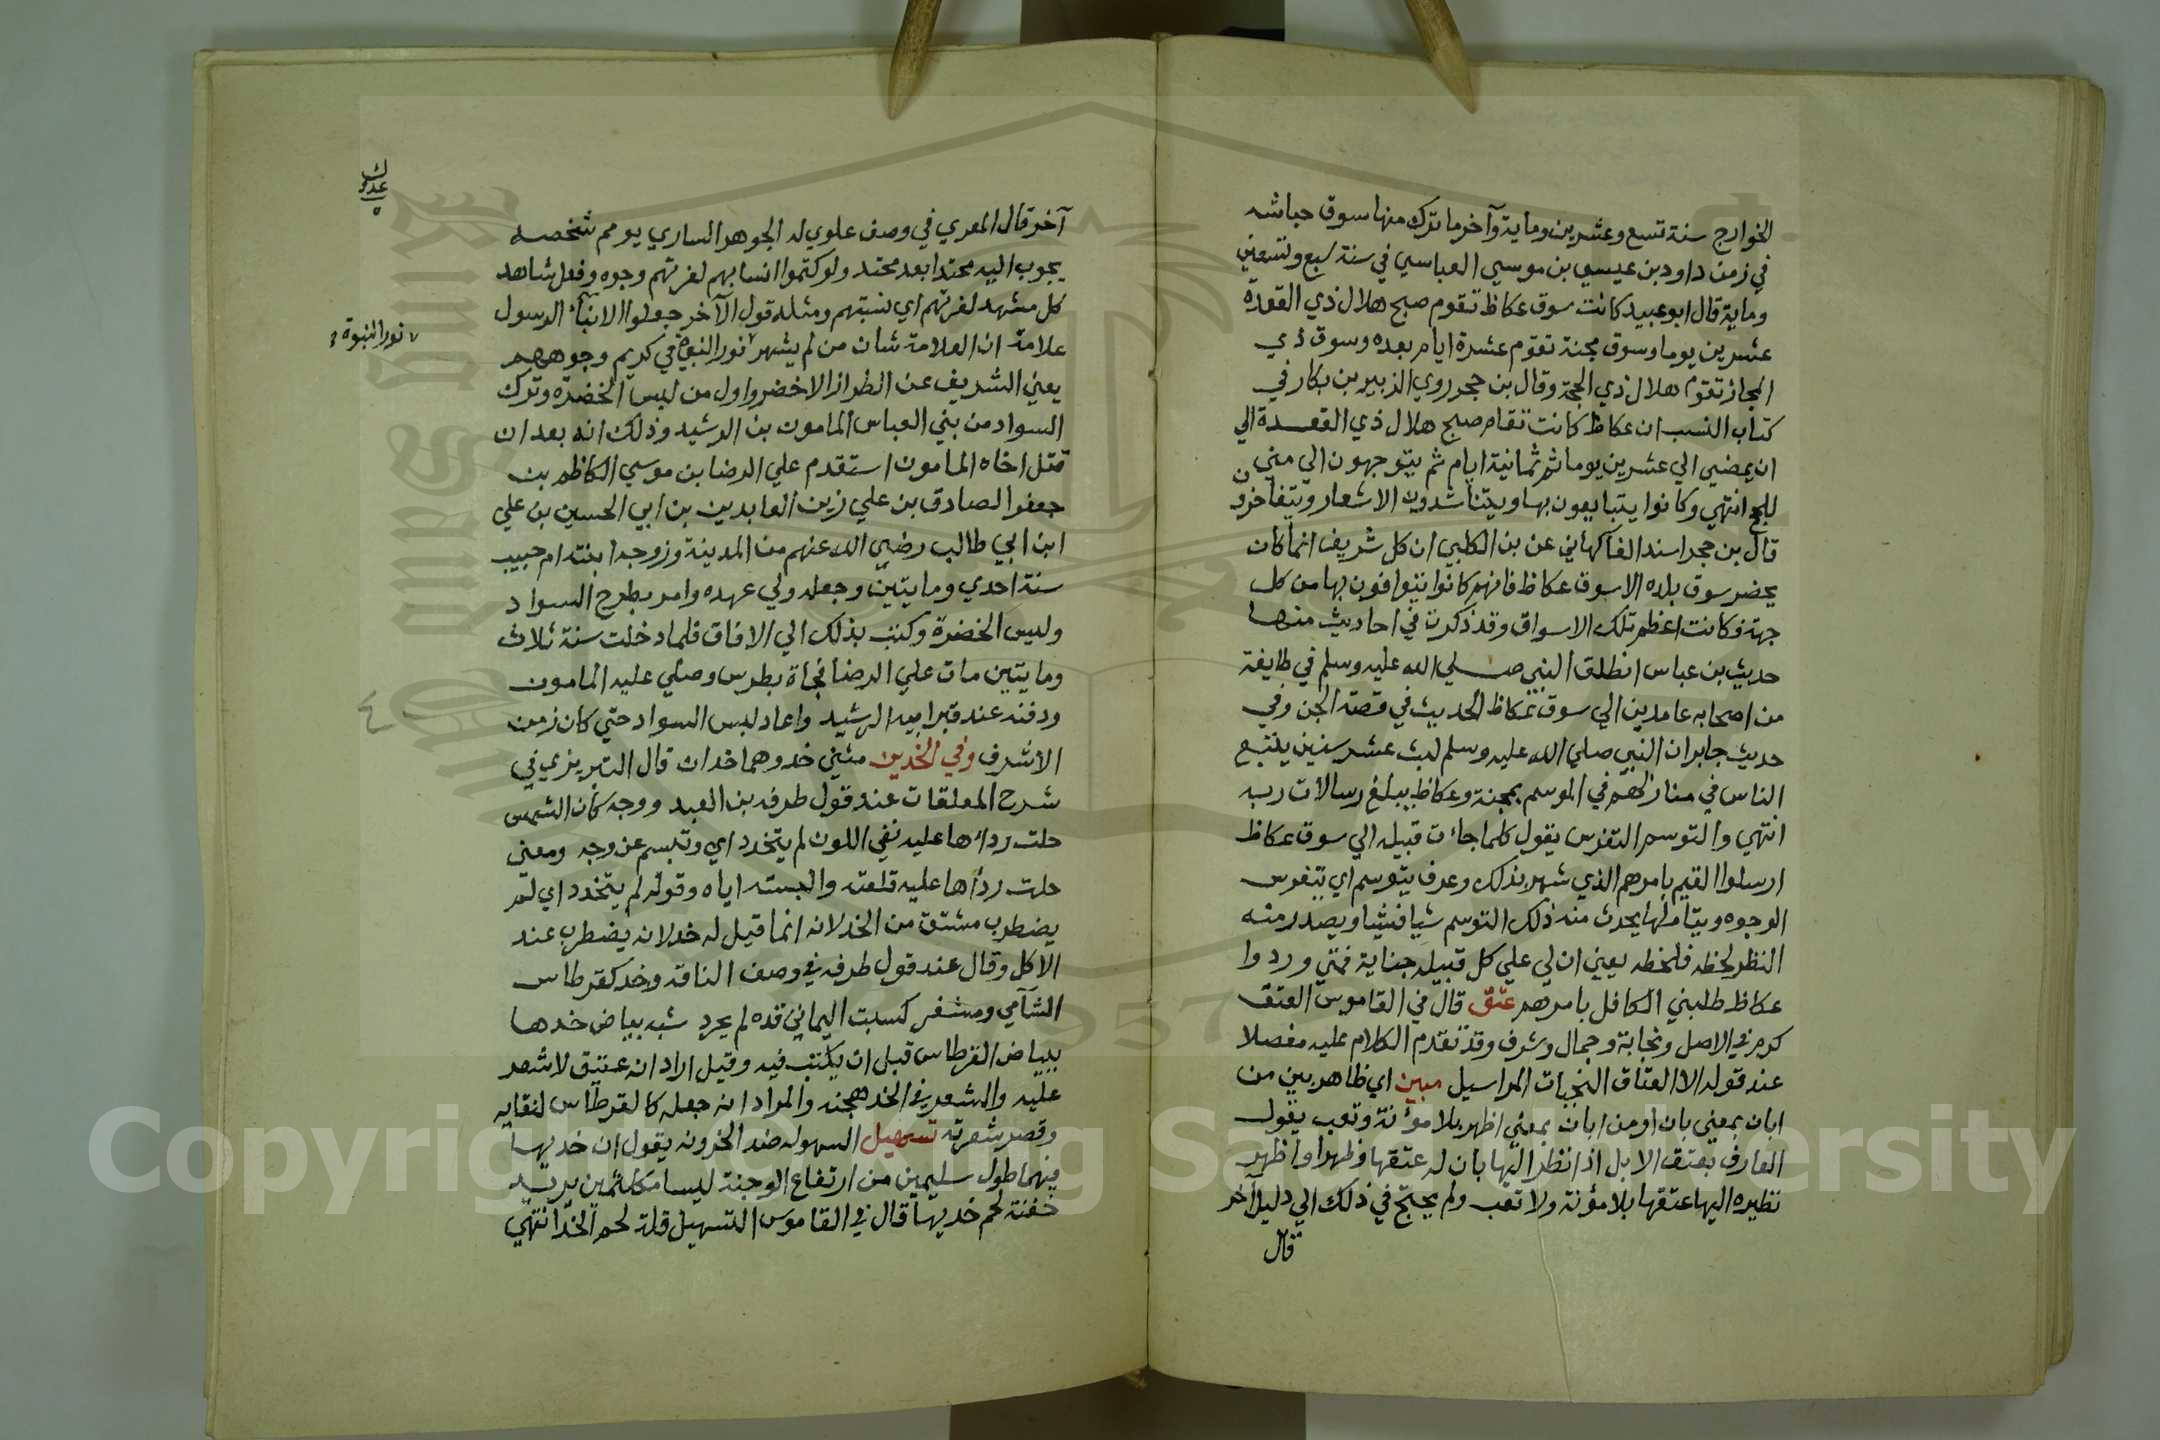 الخوارج سنة تسع وعشرين وماية وآخر ما ترك منها سوق حباشه
في زمن داود بن عيسي بن موسي العباسي في سنة سبع وتسعين
وماية قال ابو عبيد كانت سوق عكاظ تقوم صبح هلال ذي القعدة
عشرين يوما وسوق مجنة تقوم عشرة ايام بعده وسوق ذي
المجاز تقوم هلال ذي الحجة وقال بن حجر روي الزبير بن بكار في
كتاب النسب ان عكاظ كانت تقام صبح هلال ذي القعدة الي
ان يمضي الي عشرين يوما ثم ثمانية ايام ثم يتوجهون الي مني
للحج انتهي وكانوا يتبايعون بها ويتناشدون الاشعار ويتفاخرون
قال بن حجر اسند الفاكهاني عن بن الكلبي ان كل شريف انما كان
يحضر سوق بلده الا سوق عكاظ فانهم كانوا يتوافون بها من كل
جهة فكانت اعظم تلك الاسواق وقد ذكرت في احاديث منها
حديث بن عباس انطلق النبي صلي الله عليه وسلم في طايفة
من اصحابه عامدين الي سوق عكاظ الحديث في قصة الجن وفي
حديث جابر ان النبي صلي الله عليه وسلم لبث عشر سنين يتتبع
الناس في منازلهم في الموسم بمجنة وعكاظ يبلغ رسالات ربه
انتهي والتوسم التفرس يقول كلما جاءت قبيله الي سوق عكاظ
ارسلوا القيم بامرهم الذي شهر بذلك وعرف يتوسم اي يتفرس
الوجوه ويتاملها يحدث منه ذلك التوسم شيا فشيا ويصدر منه
النظر لحظه فلحظه يعني ان لي علي كل قبيله جناية فمتي وردوا
عكاظ طلبني الكافل بامرهم عتق قال في القاموس العتق
كرم في الاصل ونجابة وجمال وشرف وقد تقدم الكلام عليه مفصلا
عند قوله الا العتاق النجيبات المراسيل مبين اي ظاهر بين من
ابان بمعني بان او من ابان بمعني اظهر بلا مؤنة وتعب يقول
العارف بعتق الابل اذا نظر اليها بان له عتقها وظهر او اظهر
نظيره اليها عتقها بلا مؤنة ولا تعب ولم يحتج في ذلك الي دليل آخر
قال
عدك
آخر قال المعري في وصف علوي له الجوهر الساري يومم شخصه
يجوب اليه محتدا بعد محتد ولو كتموا انسابهم لعزتهم وجوه وفعل شاهد
كل مشهد لعزتهم اي نسبتهم ومثله قول الآخر جعلوا لابناء الرسول
علامة ان العلامة شان من لم يشهر نور النبوة في كريم وجوههم
نور النبوة
يغني الشريف عن الطراز الاخضر واول من لبس الخضرة وترك
السواد من بني العباس المامون بن الرشيد وذلك انه بعد ان
قتل اخاه المامون استقدم علي الرضا بن موسي الكاظم بن
جعفر الصادق بن علي زين العابدين بن ابي الحسين بن علي
ابن ابي طالب رضي الله عنهم من المدينة وزوجه ابنته ام حبيب
سنة احدي ومايتين وجعله ولي عهده وامر بطرح السواد
ولبس الخضرة وكتب بذلك الي الافاق فلما دخلت سنة ثلاث
ومايتين مات علي الرضا فجاة بطرس وصلي عليه المامون
ودفنه عند قبر ابيه الرشيد واعاد لبس السواد حتي كان زمن
الاشرف وفي الخدين مثني خد وهما خدان قال التبريزي في
شرح المعلقات عند قول طرفه بن العبد ووجه كان الشمس
حلت رداءها عليه نقي اللون لم يتخدد اي وتبسم عن وجه ومعني
حلت رداها عليه قلعته والبسته اياه وقوله لم يتخدد اي لم
يضطرب مشتق من الخد لانه انما قيل له خد لانه يضطرب عند
الاكل وقال عند قول طرفه في وصف الناقه وخد كقرطاس
الشآمي ومشفر كسبت اليماني قده لم يجرد شبه بياض خدها
ببياض القرطاس قبل ان يكتب فيه وقيل اراد انه عتيق لا شعر
عليه والشعر في الخد هجنه والمراد انه جعله كالقرطاس لنقايه
وقصر شعرته تسهيل السهوله ضد الحزونه يقول ان خديها
فيهما طول سليمين من ارتفاع الوجنة ليسا مكلثمين يريد
خفة لحم خديها قال في القاموس التسهيل قلة لحم الخد انتهي